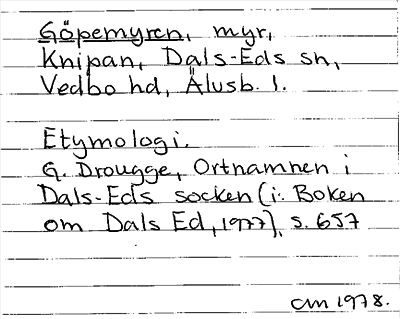 Göpemyren, myr,
Knipan, Dals-Eds sn,
Vedbo hd, Älvsb. l.
Etymologi.
G. Drougge, Ortnamnen i
Dals-Eds socken (i: Boken
om Dals Ed, 1977), s. 657
CM 1978.